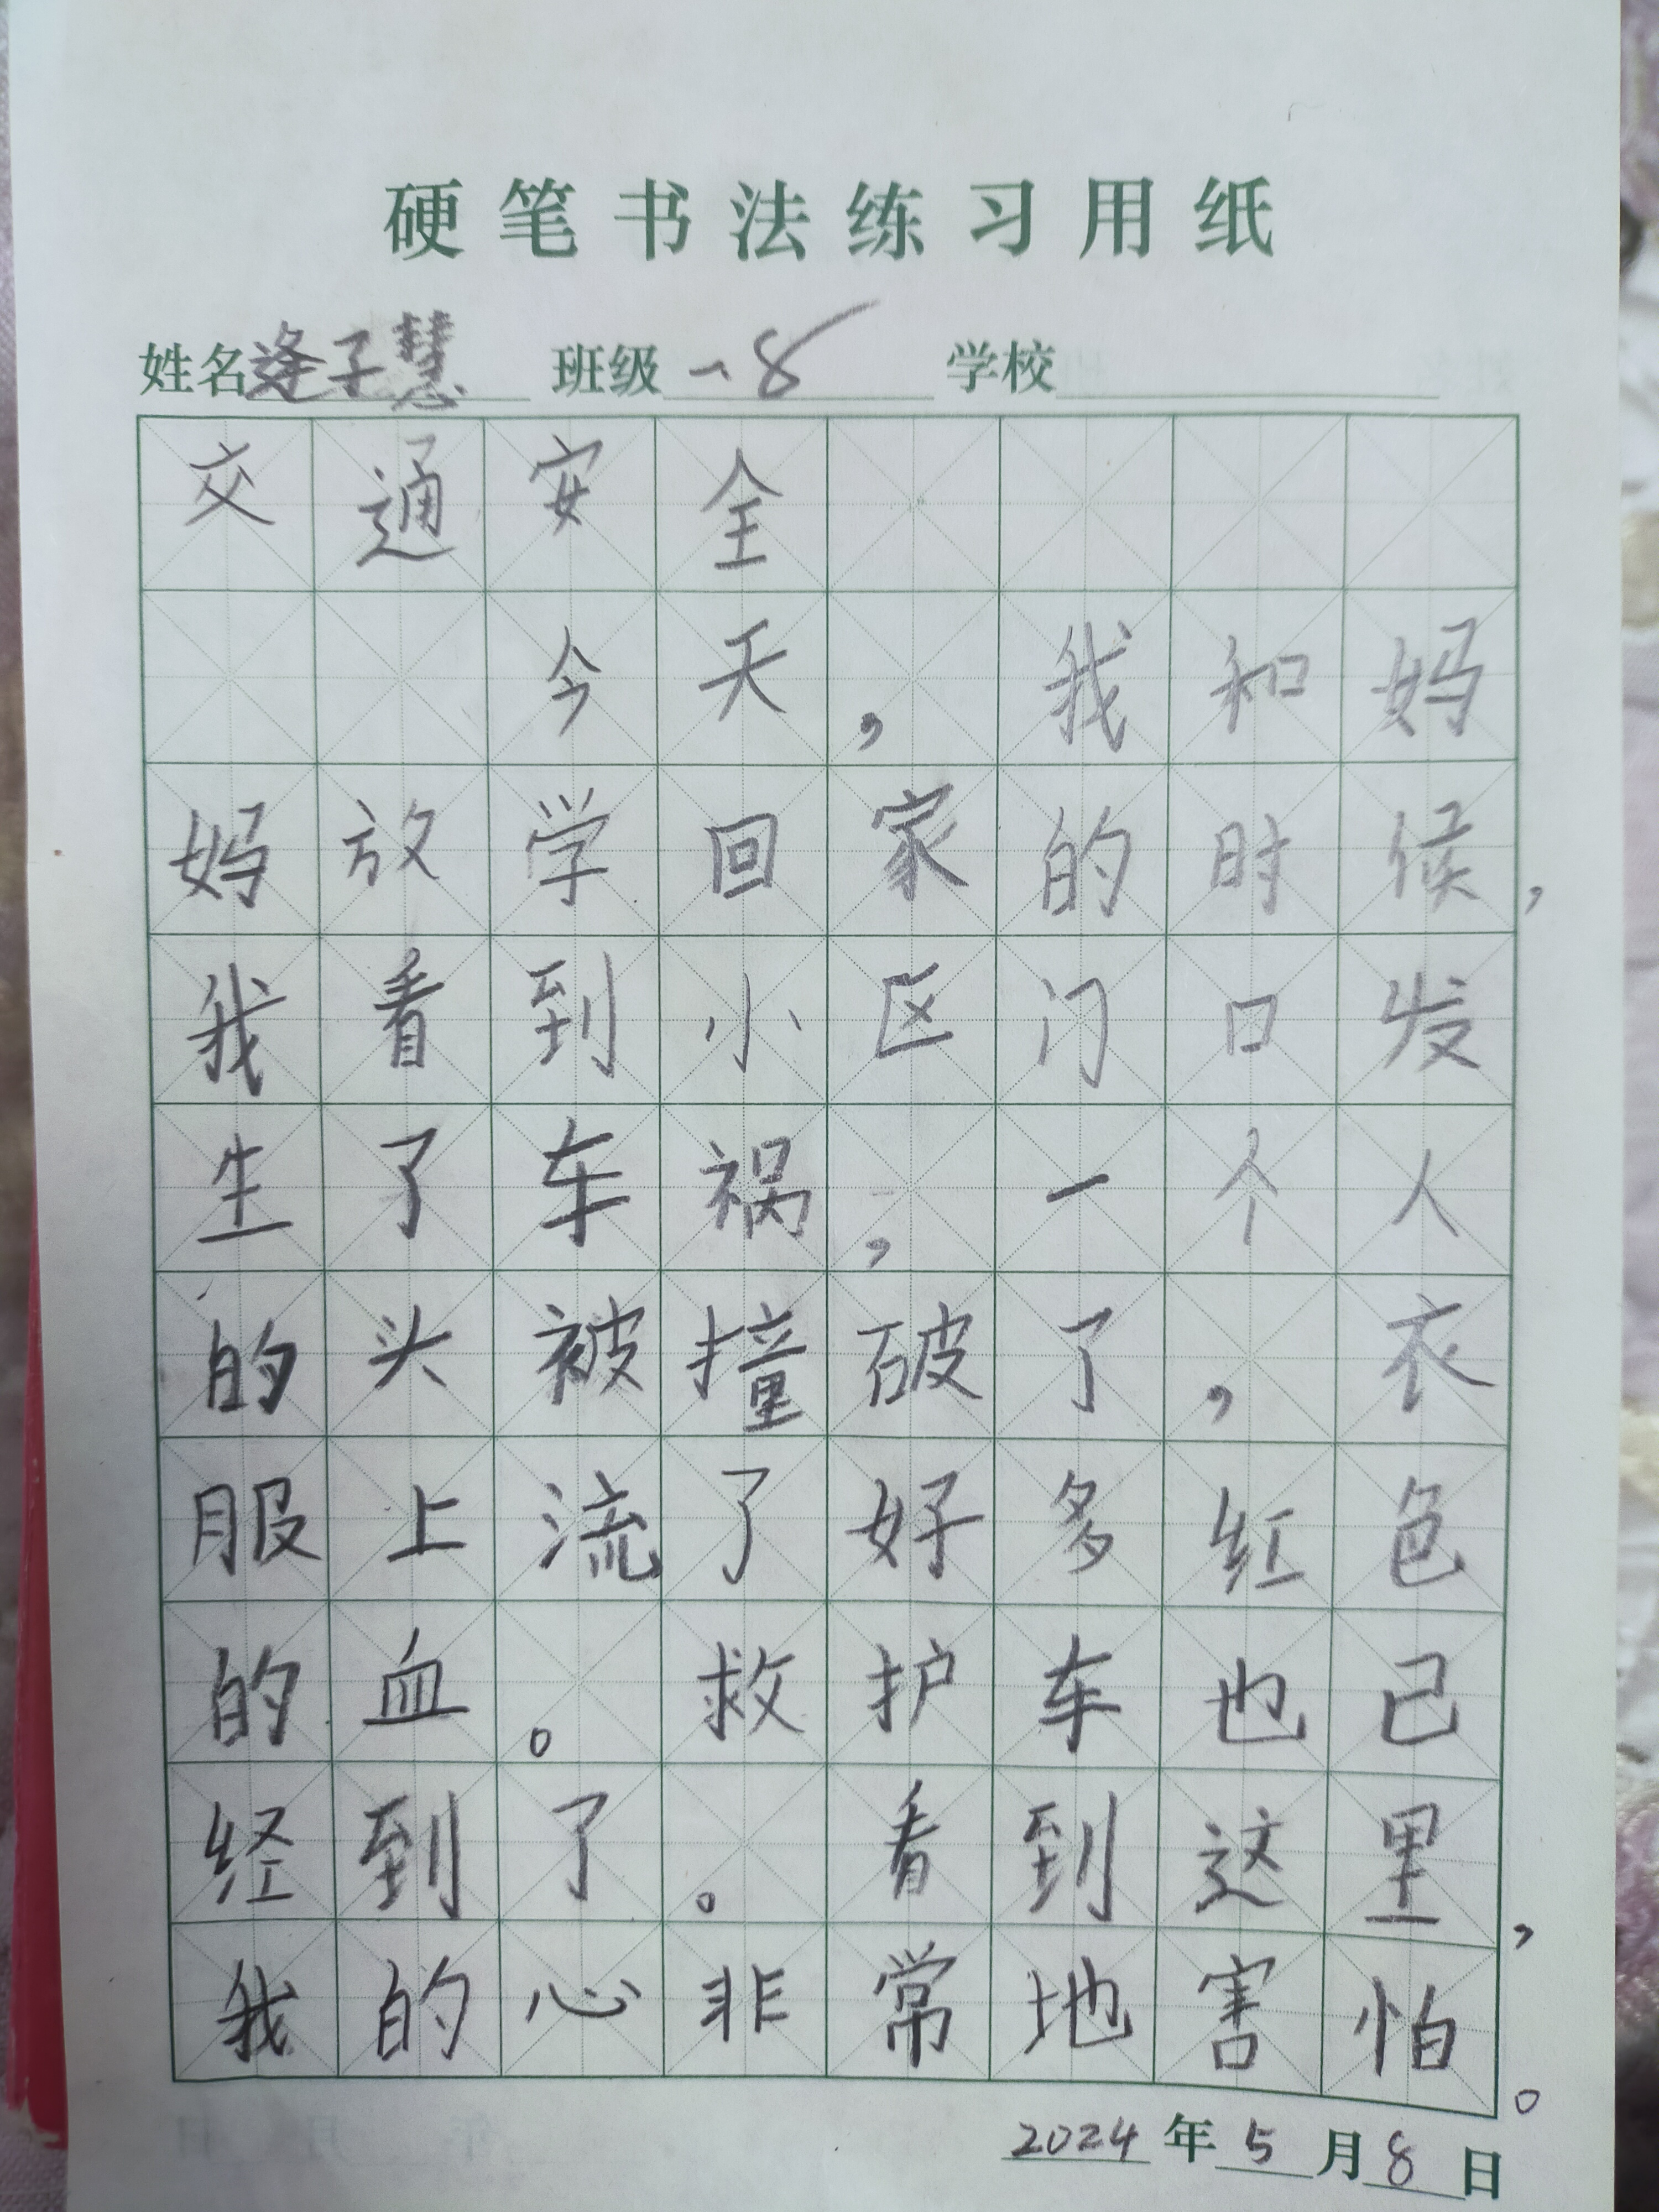 硬笔书法练习用纸
姓名逄子慧 班级一8 学校
交通安全
今天，我和妈
妈放学回家的时候，
我看到小区门口发
生了车祸，一个人
的头被撞破了，衣
服上流了好多红色
的血。救护车也已
经到了。看到这里，
我的心非常地害怕。
2024年5月8日